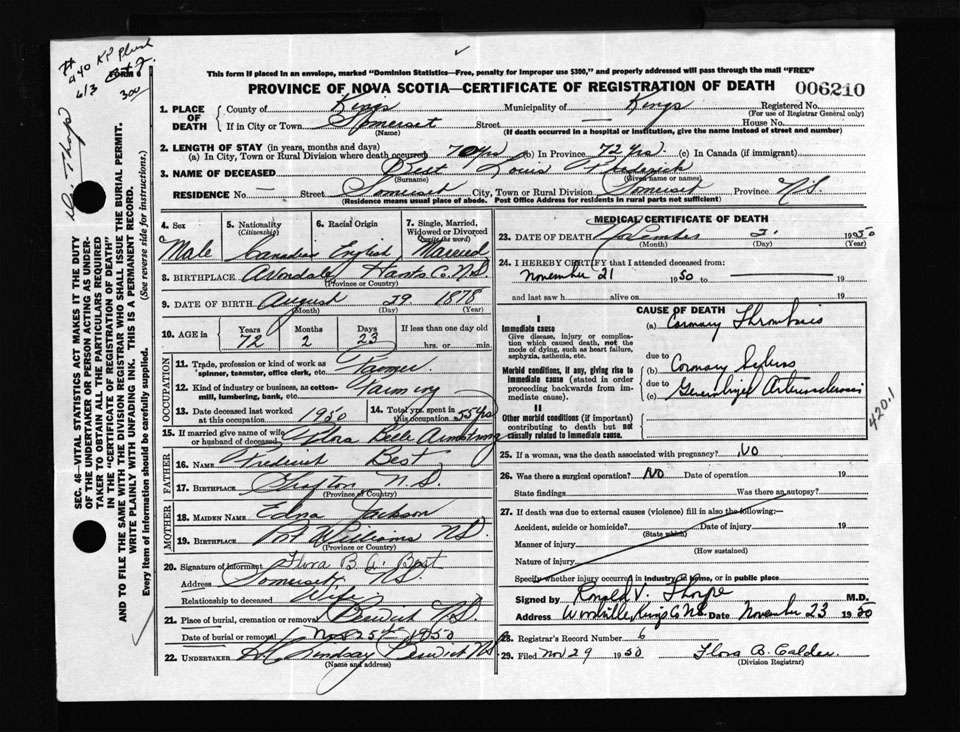 # 440 KP
6/3
FORM 6
300
This form if placed in an envelope, marked "Dominion Statistics—Free, penalty for improper use $300," and properly addressed will pass through the mail "FREE"
PROVINCE OF NOVA SCOTIA—CERTIFICATE OF REGISTRATION OF DEATH 006210
1. PLACE OF DEATH County of Kings Municipality of Kings Registered No.
(For use of Registrar General only)
If in City or Town Somerset Street — House No.
(Name) (If death occurred in a hospital or institution, give the name instead of street and number)
2. LENGTH OF STAY (in years, months and days)
(a) In City, Town or Rural Division where death occurred 70 yrs (b) In Province 72 yrs. (c) In Canada (if immigrant)
3. NAME OF DECEASED Best Louis
(Surname) (Given names or names)
RESIDENCE No. — Street Somerset City, Town or Rural Division Somerset Province N.S.
(Residence means usual place of abode. Post Office Address for residents in rural parts not sufficient)
4. Sex Male
5. Nationality (Citizenship) Canadian
6. Racial Origin English
7. Single, Married, Widowed or Divorced (write the word) Married
8. BIRTHPLACE Avondale Hants Co. N.S.
(Province or Country)
9. DATE OF BIRTH August 29 1878
(Month) (Day) (Year)
10. AGE in Years 72 Months 2 Days 23 If less than one day old
hrs. or min.
OCCUPATION
11. Trade, profession or kind of work as spinner, teamster, office clerk, etc. Farmer
12. Kind of industry or business, as cotton-mill, lumbering, bank, etc. Farming
13. Date deceased last worked at this occupation 1950 14. Total yrs. spent in this occupation 55 yrs
15. If married give name of wife or husband of deceased Flora Belle Armstrong
FATHER
16. NAME Best
17. BIRTHPLACE Grafton N.S.
(Province or Country)
MOTHER
18. MAIDEN NAME Edna Jackson
19. BIRTHPLACE Port Williams N.S.
(Province or Country)
20. Signature of informant Flora B. A. Best
Address Somerset N.S.
Relationship to deceased Wife
21. Place of burial, cremation or removal Berwick N.S.
Date of burial or removal Nov 25th 1950
22. UNDERTAKER Lindsay Berwick N.S.
(Name and address)
MEDICAL CERTIFICATE OF DEATH
23. DATE OF DEATH November 1950
(Month) (Day) (Year)
24. I HEREBY CERTIFY that I attended deceased from:
November 21 1950 to 19
and last saw h alive on 19
CAUSE OF DEATH
I
Immediate cause
Give disease, injury or complication which caused death, not the mode of dying, such as heart failure, asphyxia, asthenia, etc.
(a) Coronary Thrombosis
Morbid conditions, if any, giving rise to immediate cause (stated in order proceeding backwards from immediate cause).
due to
(b) Coronary
due to
(c) Generalized Arteriosclerosis
II
Other morbid conditions (if important) contributing to death but not causally related to immediate cause.
420.1
25. If a woman, was the death associated with pregnancy? NO
26. Was there a surgical operation? NO Date of operation 19
State findings Was there an autopsy?
27. If death was due to external causes (violence) fill in also the following:—
Accident, suicide or homicide? Date of injury 19
(State which)
Manner of injury
(How sustained)
Nature of injury
Specify whether injury occurred in industry, in home, or in public place
Signed by Ronald V. Thorpe M.D.
Address Wolfville Kings Co. N.S. Date November 23 1950
28. Registrar's Record Number 6
29. Filed Nov 29 1950 Flora B. Calder.
(Division Registrar)
Dr. Thorpe
SEC. 46—VITAL STATISTICS ACT MAKES IT THE DUTY
OF THE UNDERTAKER OR PERSON ACTING AS UNDER-
TAKER TO OBTAIN ALL THE PARTICULARS REQUIRED
IN THE "CERTIFICATE OF REGISTRATION OF DEATH"
AND TO FILE THE SAME WITH THE DIVISION REGISTRAR WHO SHALL ISSUE THE BURIAL PERMIT.
WRITE PLAINLY WITH UNFADING INK. THIS IS A PERMANENT RECORD.
Every item of information should be carefully supplied. (See reverse side for instructions.)